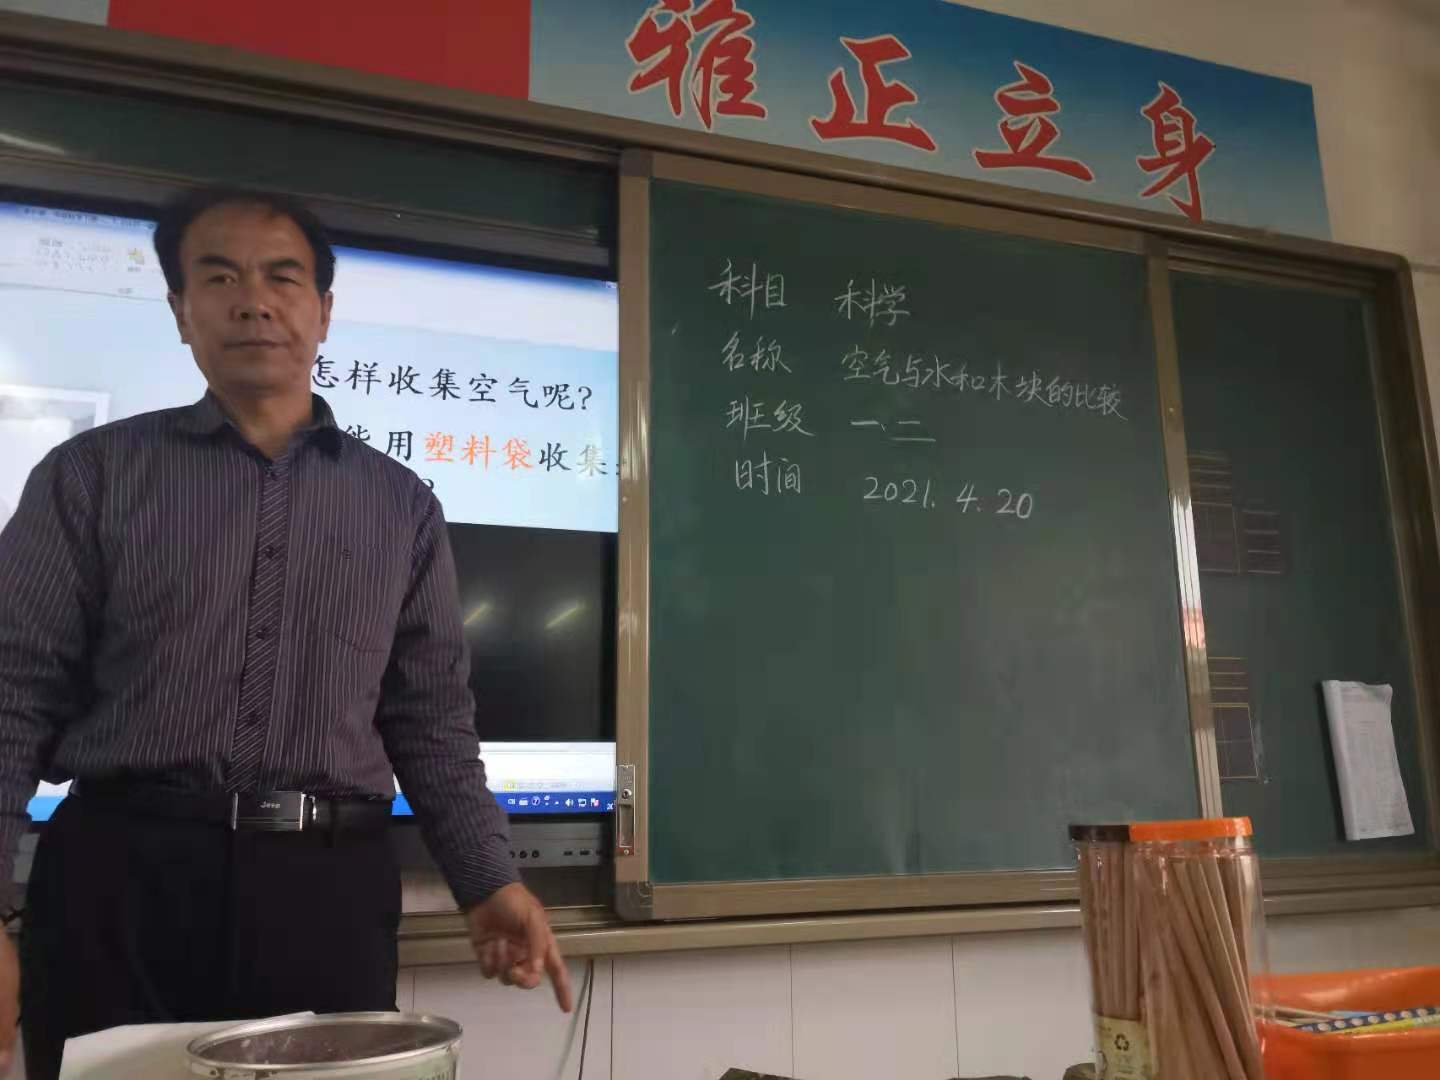 雅正立身
怎样收集空气呢?
能用塑料袋收集
?
科目 科学
名称 空气与水和木块的比较
班级 一、二
时间 2021.4.20
Jeep